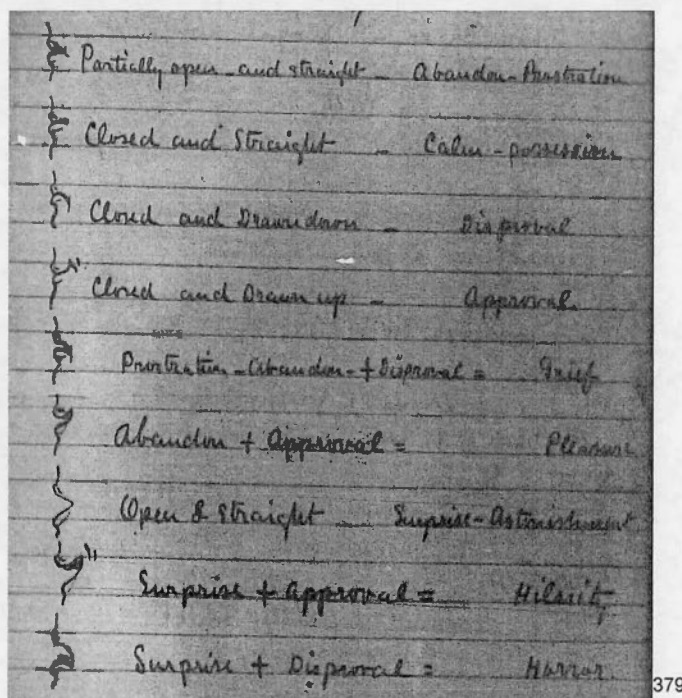 Partially open - and straight - Abandon - Prostration
Closed and Straight - Calm - possession
Closed and Drawn down - Disproval
Closed and Drawn up - Approval.
Prostration - Abandon - + Disproval = Grief
Abandon + Approval = Pleasure
Open & Straight - Surprise - Astonishment
Surprise + Approval = Hilarity
Surprise + Disproval = Horror.
379